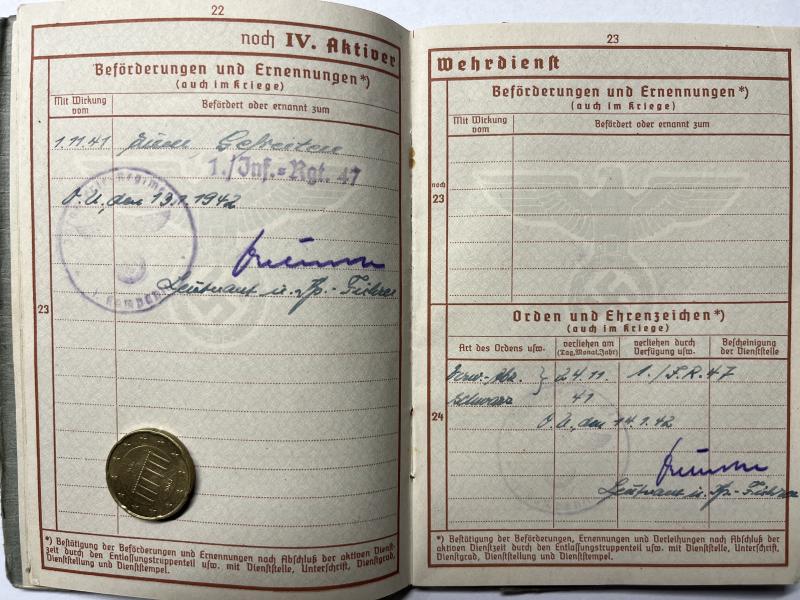 22
noch IV. Aktiver
Beförderungen und Ernennungen*)
(auch im Kriege)
Mit Wirkung vom
Befördert oder ernannt zum
1.11.41 zum Gefreiten
1./Inf.=Rgt. 47
O.U., den 19.1.1942
Leutnant u. Kp.-Führer
23
*) Bestätigung der Beförderungen und Ernennungen nach Abschluß der aktiven Dienst-
zeit durch den Entlassungstruppenteil usw. mit Dienststelle, Unterschrift, Dienstgrad,
Dienststellung und Dienststempel.
23
Wehrdienst
Beförderungen und Ernennungen*)
(auch im Kriege)
Mit Wirkung vom
Befördert oder ernannt zum
noch
23
Orden und Ehrenzeichen*)
(auch im Kriege)
Art des Ordens usw.
verliehen am (Tag, Monat, Jahr)
verliehen durch Verfügung usw.
Bescheinigung der Dienststelle
Verw.-Abz. } 24.11. 1./I.R.47
schwarz 41
O.U., den 14.1.42
24
Leutnant u. Kp.-Führer
*) Bestätigung der Beförderungen, Ernennungen und Verleihungen nach Abschluß der
aktiven Dienstzeit durch den Entlassungstruppenteil usw. mit Dienststelle, Unterschrift,
Dienstgrad, Dienststellung und Dienststempel.